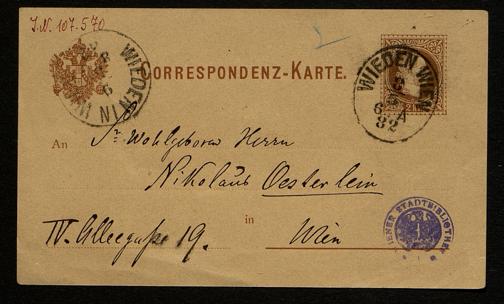 I.N. 107.570
WIEDEN WIEN
CORRESPONDENZ-KARTE.
WIEDEN WIEN
82
An Sr Wohlgeboren Herrn
Nikolaus Oesterlein
IV. Alleegasse 19. in Wien
WIENER STADTBIBLIOTHEK